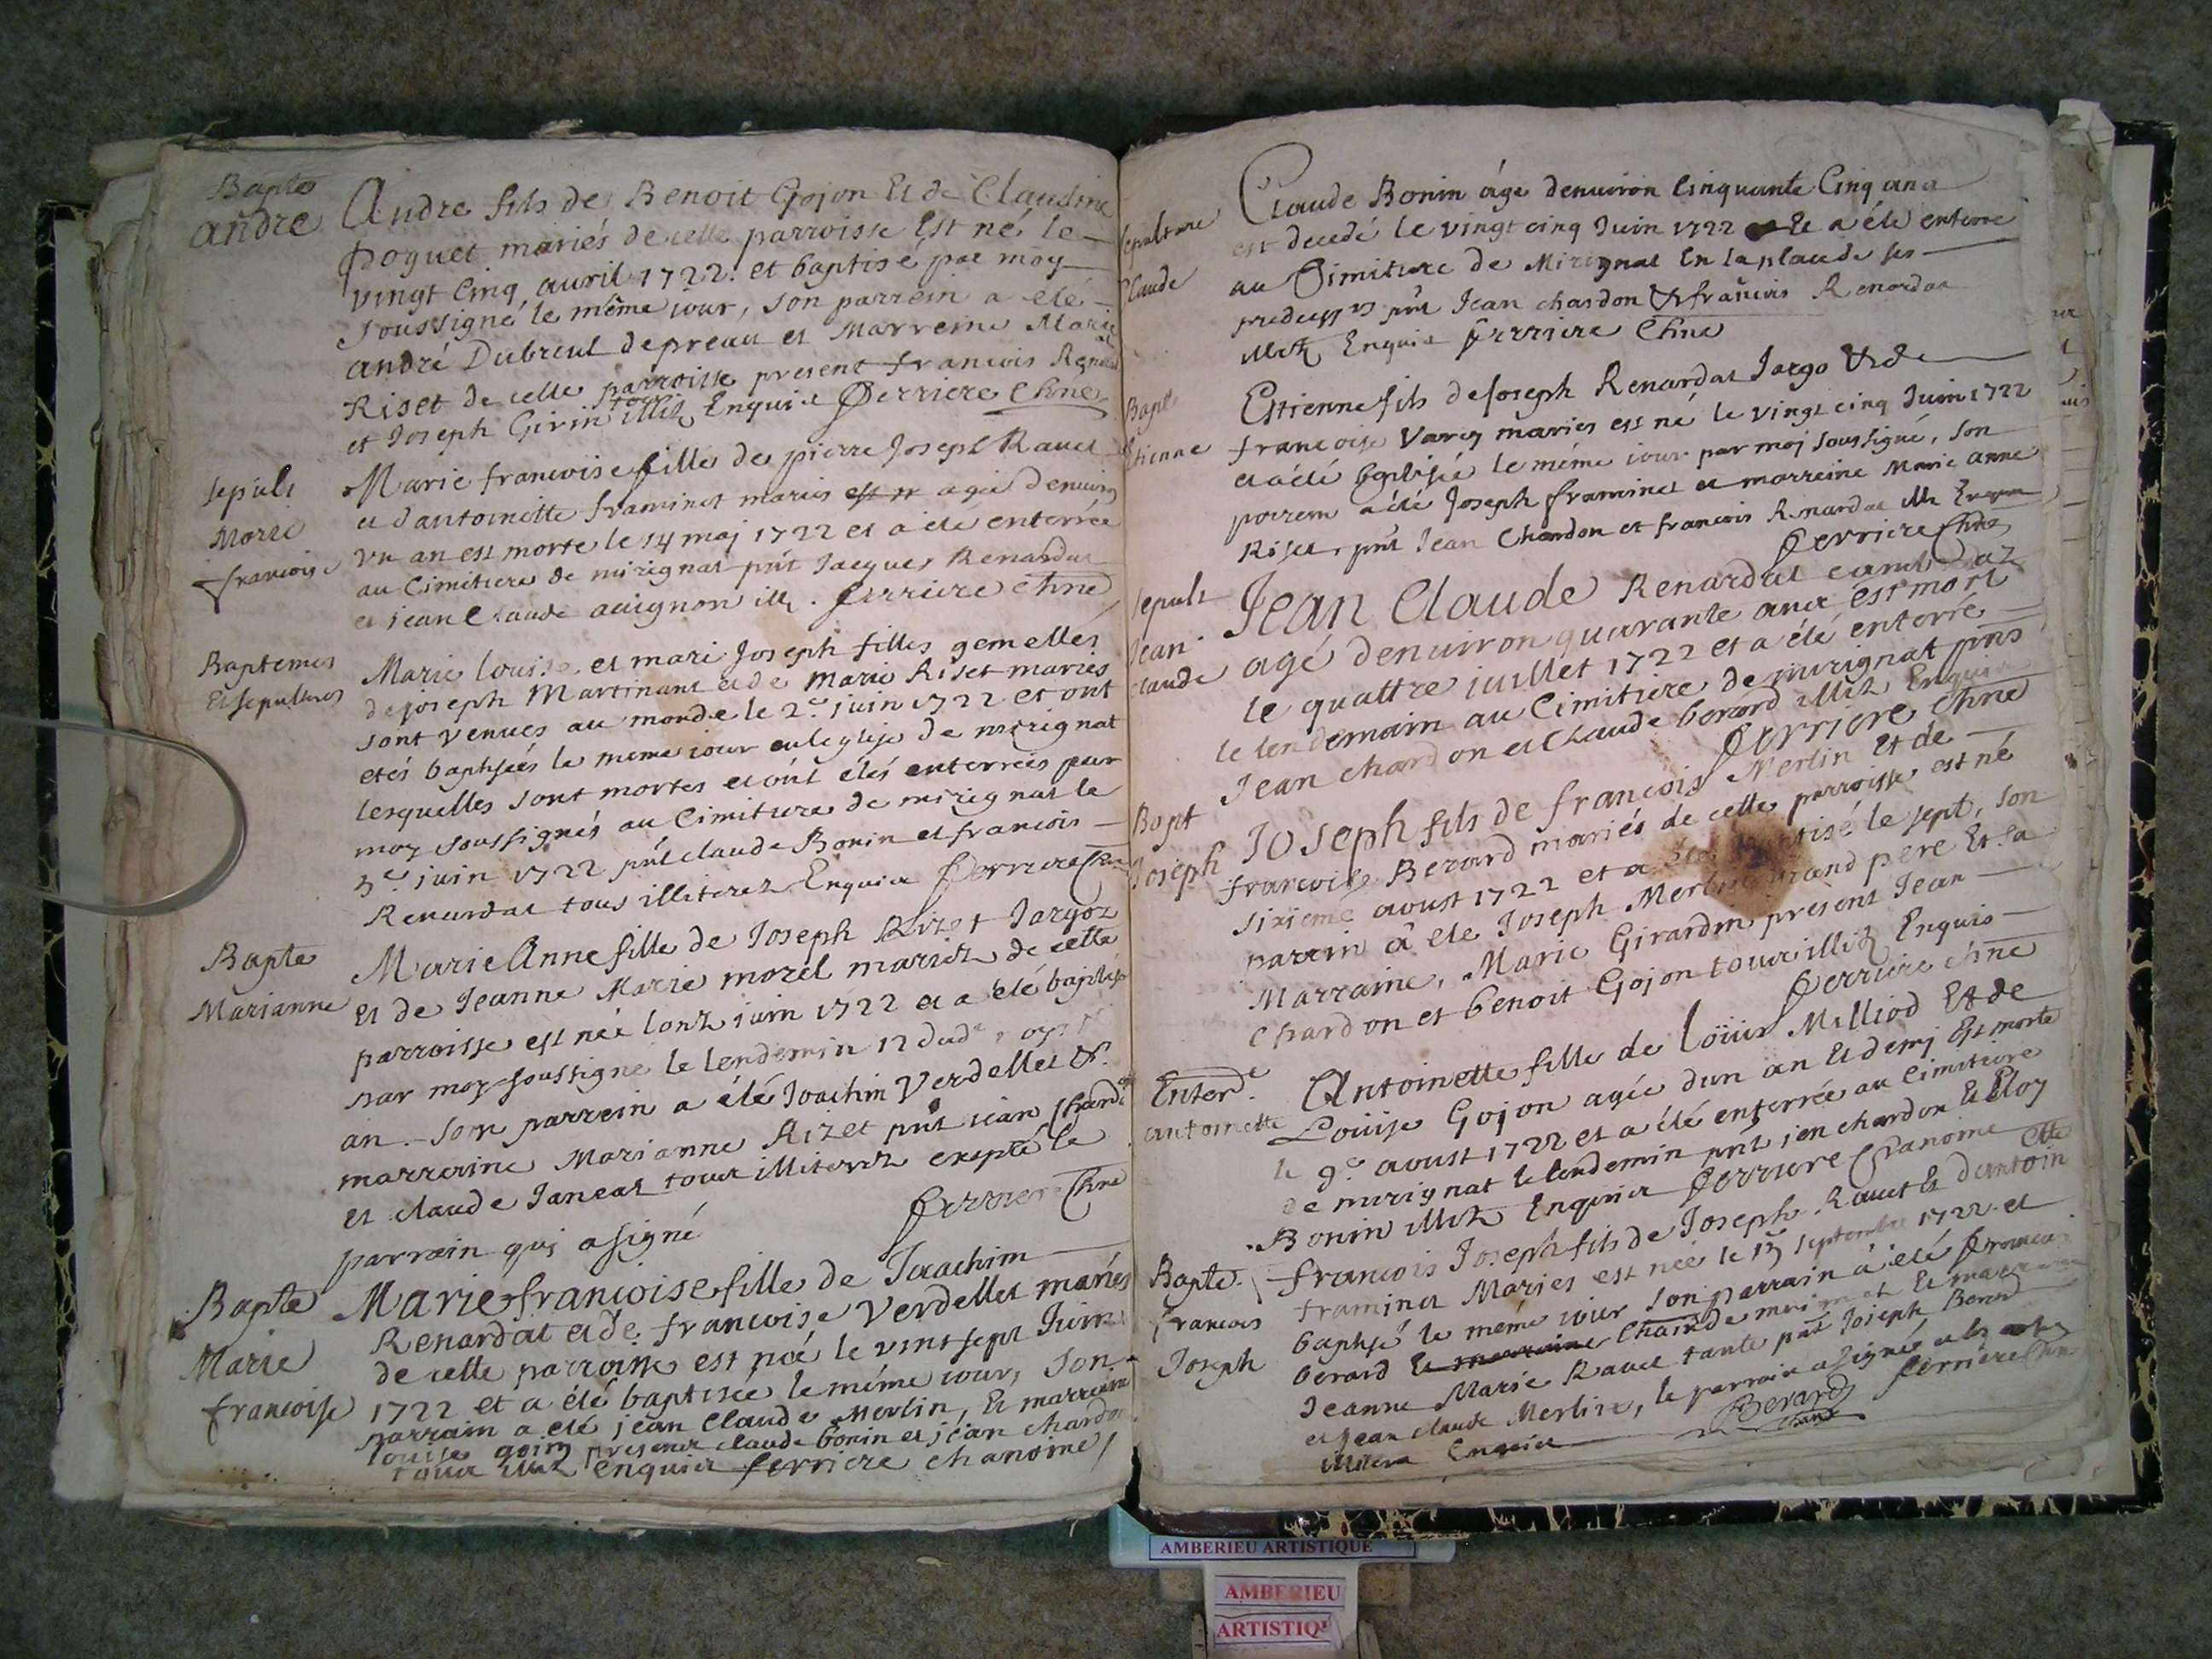 Bapte
andre
Andre fils de Benoit Gojon Et de Claudine
Poguet mariés de celle parroisse Est né le
vingt Cinq auril 1722. et baptisé par moy
soussigné le même iour, son parrein a eté
andré Dubreul depreau et Marreine Marie
Riset de celle parroisse present francois
et Joseph Girin tous illitz Enquis Perriere Chne
sepult
Marie
francoise
Marie francoise fille de pierre Joseph Rauet
et dantoinette framinet mariés est n agée denuiron
vn an est morte le 14 maj 1722 et a été enterrée
au Cimitiere de mirignat pnt Jacques Renardat
et jean Claude auignon ill. Perriere chne
Baptemes
Et sepultures
Marie louise et mari Joseph filles gemelles
de joseph Martinant et de Marie Riset mariés
sont venues au monde le 2e juin 1722 et ont
etés baptisées le meme iour en leglise de mirignat
lesquelles sont mortes et ont étés enterrées par
moy soussignés au Cimitiere de mirignat le
3e juin 1722 pnt claude Bonin et francois
Renardat tous illiterez Enquis Perriere Chne
Bapte
Marianne
Marie Anne fille de Joseph Rizet Jargoz
Et de Jeanne Marie morel mariez de cette
parroisse est née lonz iuin 1722 et a été baptisé
par moy soussigné le lendemin 12 dud
an. son parrein a été Joachin Verdellet &
marreine Marianne Rizet pnt iean Chardon
et claude Janeat tous illiterez exepté le
parrein qui a signé Perriere Chne
Bapte
Marie
francoise
Marie francoise fille de Joachim
Renardat et de francoise Verdellet mariés
de celle parroisse est née le vint sept Juin
1722 et a été baptisée le méme iour, son
parrain a eté jean Claude Merlin, Et marreine
louise presens claude bonin et jean chardon
tous illitz enquis ferriere chanoine
sepulture
Claude
Claude Bonin âgé denuiron Cinquante Cinq ans
est decedé le vingt cinq Juin 1722 Et a été enterré
au Cimitiere de Mirignat En la place de ses
pnt Jean chardon & francois Renardat
illitz Enquis Perriere Chne
Bapte
Etienne
Estienne fils de Joseph Renardat Jargo & de
francoise Varey mariés est né le vingt cinq Juin 1722
et a été baptisée le méme iour par moj soussigné, son
parrein a été Joseph framinet et marreine Marie anne
Riset, pnt Jean Chardon et francois Renardat
Perriere Chne
sepult
Jean
claude
Jean Claude Renardat
agé denuiron quarante ans est mort
le quattre iuillet 1722 et a été enterré
le lendemain au Cimitiere de mirignat pnts
Jean chardon et Claude berard illitz Enquis
Perriere Chne
Bapt
Joseph
Joseph fils de francois Merlin Et de
francoise Berard mariés de celle parroisse est né
sixieme aoust 1722 et a été baptisé le sept, son
parrin â ete Joseph Merlin grand pere Et sa
Marraine, Marie Girardin present Jean
Chardon et benoit Gojon tous illitz Enquis
Perriere chne
Enterde
antoinette
Antoinette fille de loüis Milliod Et de
Loüise Gojon agée dun an Et demj Est morte
le 9e aoust 1722 et a été enterrée au Cimitiere
de mirignat le lendemin pnt jen chardon Et Eloy
Bonin illitz Enquis Perriere Chanoine
Bapte
francois
Joseph
francois Joseph fils de Joseph Rauet Et dantoinette
framinet Mariés est née le 13 septembre 1722 et
baptisé le méme iour son parrain â été francois
berard Et marraine Chan de Et marraine
Jeanne Marie Rauet tante pnt Joseph Berard
et Jean claude Merlin, le parrain a signée et les autres
illiterez Enquis Perriere Chne
Berard
Chane
AMBERIEU ARTISTIQUE
AMBERIEU
ARTISTIQ